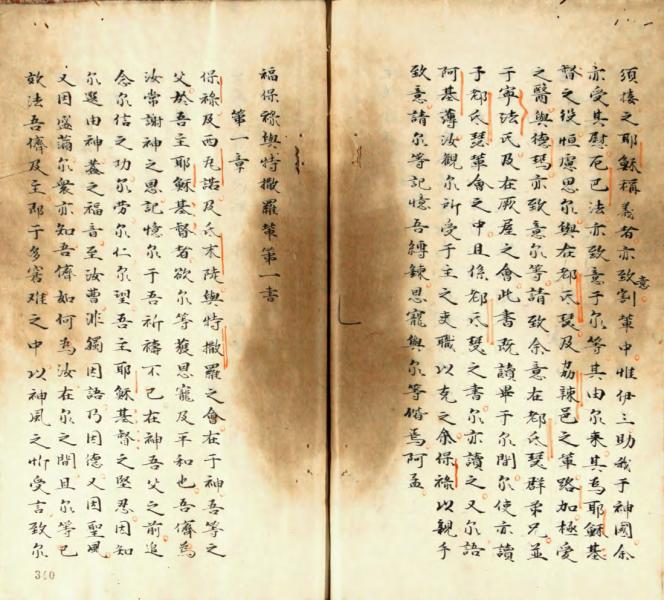 須接之耶穌稱義者亦致意割輩中惟伊三助我于神國余
亦受其慰厄巴法亦致意于尔等其由尔來其為耶穌基
督之役恒慮思尔與在郄氐瑟及茘辣邑之輩路加極愛
之醫與德瑪亦致意尔等請致余意在郄氐瑟群弟兄並
于寧法氏及在厥屋之會此書既讀畢于尔間尔使亦讀
于郄氐瑟輩會之中且係郄氐瑟之書尔亦讀之又尔語
阿基薄汝觀尔所受于主之吏職以克之余保祿以親手
致意請尔等記憶吾縛鍊恩寵與尔等偕焉阿孟
福保祿與特撒羅輩第一書
第一章
保祿及西凡諾及氐末陡與特撒羅之會在于神吾等之
父於吾主耶穌基督者欲尔等獲恩寵及平和也吾儕為
汝常謝神之恩記憶尔于吾祈禱不已在神吾父之前追
念尔信之功尔勞尔仁尔望吾主耶穌基督之堅忍因知
尔選由神蓋之福音至汝曹非獨因語乃因德又因聖風
又因盛滿尔衆亦知吾儕如何為汝在尔之間且尔等已
效法吾儕及主即于多害难之中以神風之忻受言致尔
340